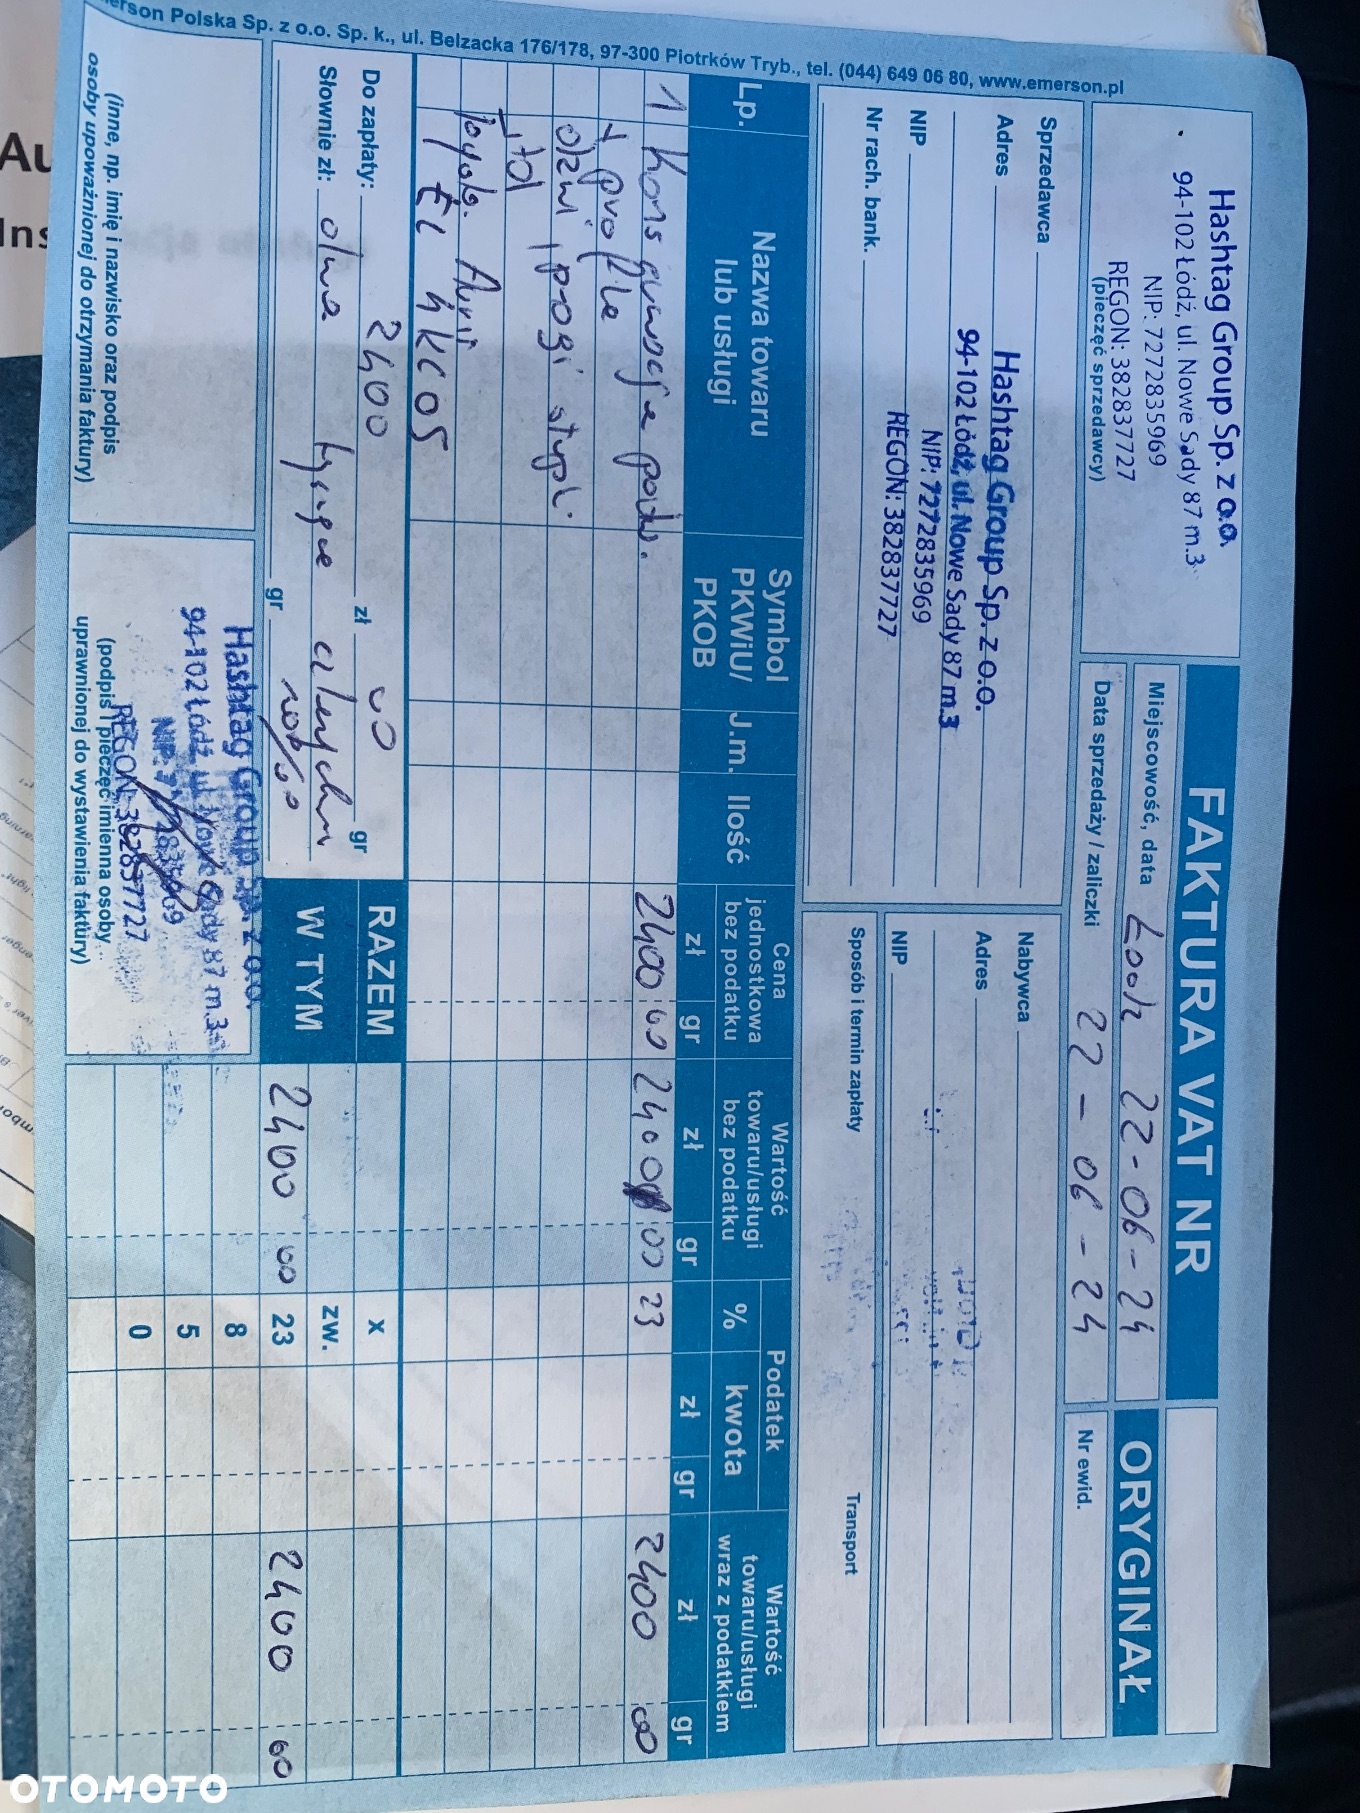 Hashtag Group Sp. z o.o.
94-102 Łódź, ul. Nowe Sady 87 m.3
NIP: 7272835969
REGON: 382837727
(pieczęć sprzedawcy)
FAKTURA VAT NR
ORYGINAŁ
Miejscowość, data Łódź 22-06-24
Data sprzedaży / zaliczki 22-06-24
Nr ewid.
Sprzedawca
Hashtag Group Sp. z o.o.
Adres
94-102 Łódź, ul. Nowe Sady 87 m.3
NIP
NIP: 7272835969
REGON: 382837727
Nr rach. bank.
Nabywca
Adres
NIP
Sposób i termin zapłaty
Transport
Lp.
Nazwa towaru lub usługi
Symbol PKWiU/ PKOB
J.m.
Ilość
Cena jednostkowa bez podatku
zł gr
Wartość towaru/usługi bez podatku
zł gr
Podatek
% kwota
zł gr
Wartość towaru/usługi wraz z podatkiem
zł gr
1 Konserwacja podw. 2400 00 2400 00 23 2400 00
+ profile
drzwi progi
+ tył
EL 4KC05
Do zapłaty: 2400 zł 00 gr
Słownie zł: dwa tysiące
gr
RAZEM
W TYM
x
zw.
2400 00 23 2400 00
8
5
0
(inne, np. imię i nazwisko oraz podpis
osoby upoważnionej do otrzymania faktury)
Hashtag Group Sp. z o.o.
94-102 Łódź, ul. Nowe Sady 87 m.3
REGON: 382837727
(podpis i pieczęć imienna osoby
uprawnionej do wystawienia faktury)
erson Polska Sp. z o.o. Sp. k., ul. Belzacka 176/178, 97-300 Piotrków Tryb., tel. (044) 649 06 80, www.emerson.pl
Au
Ins
OTOMOTO